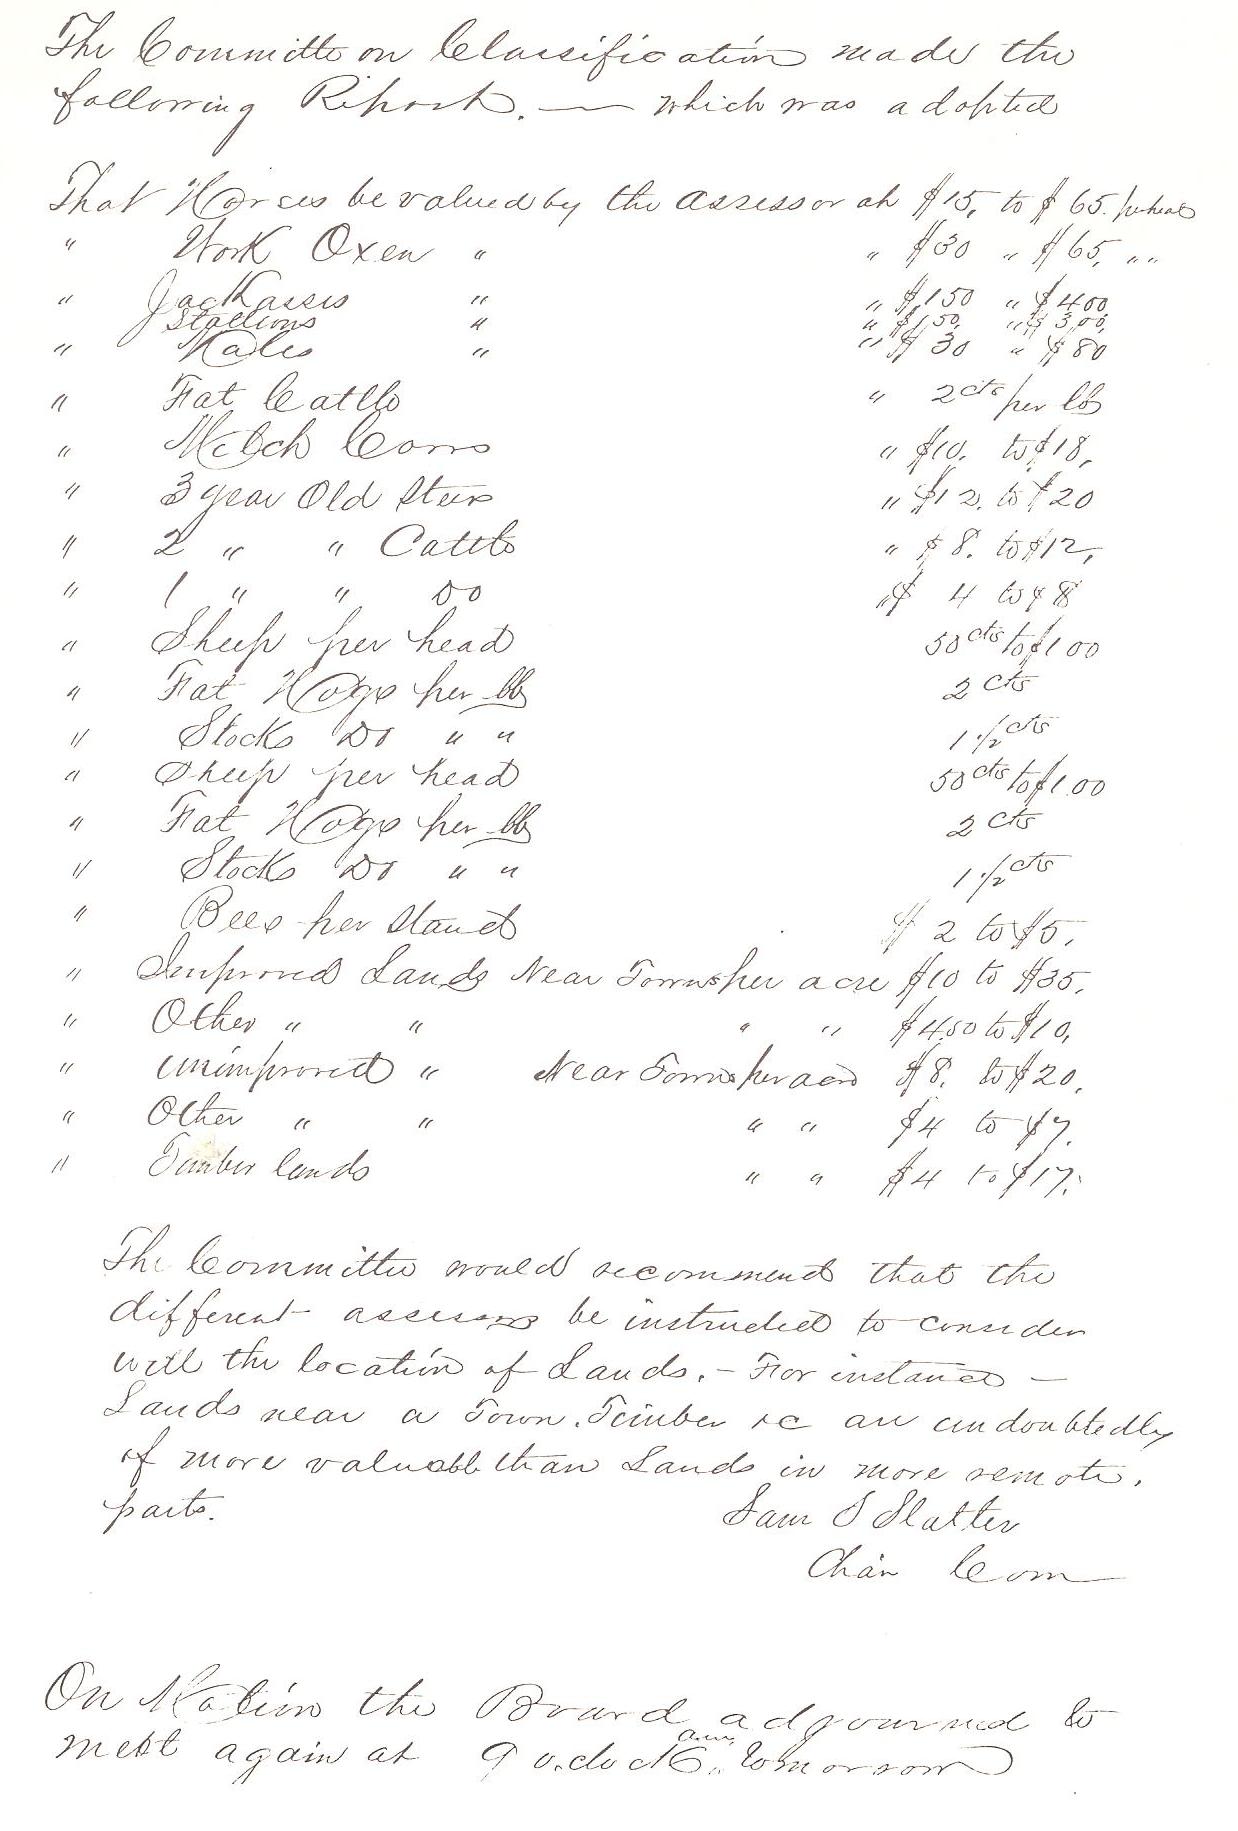 The Committe on Classification made the
following Report. — which was adopted
That Horses be valued by the assessor at $15, to $65. per head
" Work Oxen " " $30 " $65, " "
" Jackasses " " $150 " $400
Stallions " " $150, " $300,
" Mules " " $30 " $80
" Fat Cattle " 2cts per lb
" Melch Cows " $10. to $18,
" 3 year Old Steers " $12. to $20
" 2 " " Cattle " $8. to $12,
" 1 " " Do " $ 4 to $8
" Sheep per head 50cts to $1 00
" Fat Hogs per lb 2 cts
" Stocks Do " " 1 1/2 cts
" Sheep per head 50cts to $1.00
" Fat Hogs per lb 2 cts
" Stocks Do " " 1 1/2 cts
" Bees per Stand $ 2 to $5,
" Improved Lands Near Towns per acre $10 to $35,
" Other " " " " $4.50 to $10,
" Unimproved " Near Towns per acre $8. to $20,
" Other " " " " $4 to $7.
" Timber lands " " $4 to $17.
The Committee would recommend that the
different assessors be instructed to consider
well the location of Lands. – For instance –
Lands near a Town. Timber &c are undoubtedly
of more valuable than Lands in more remote.
parts.
Sam S Slatter
Chán Com
On Motion the Board adjourned to
meet again at 9 o.clock a.m. tomorrow